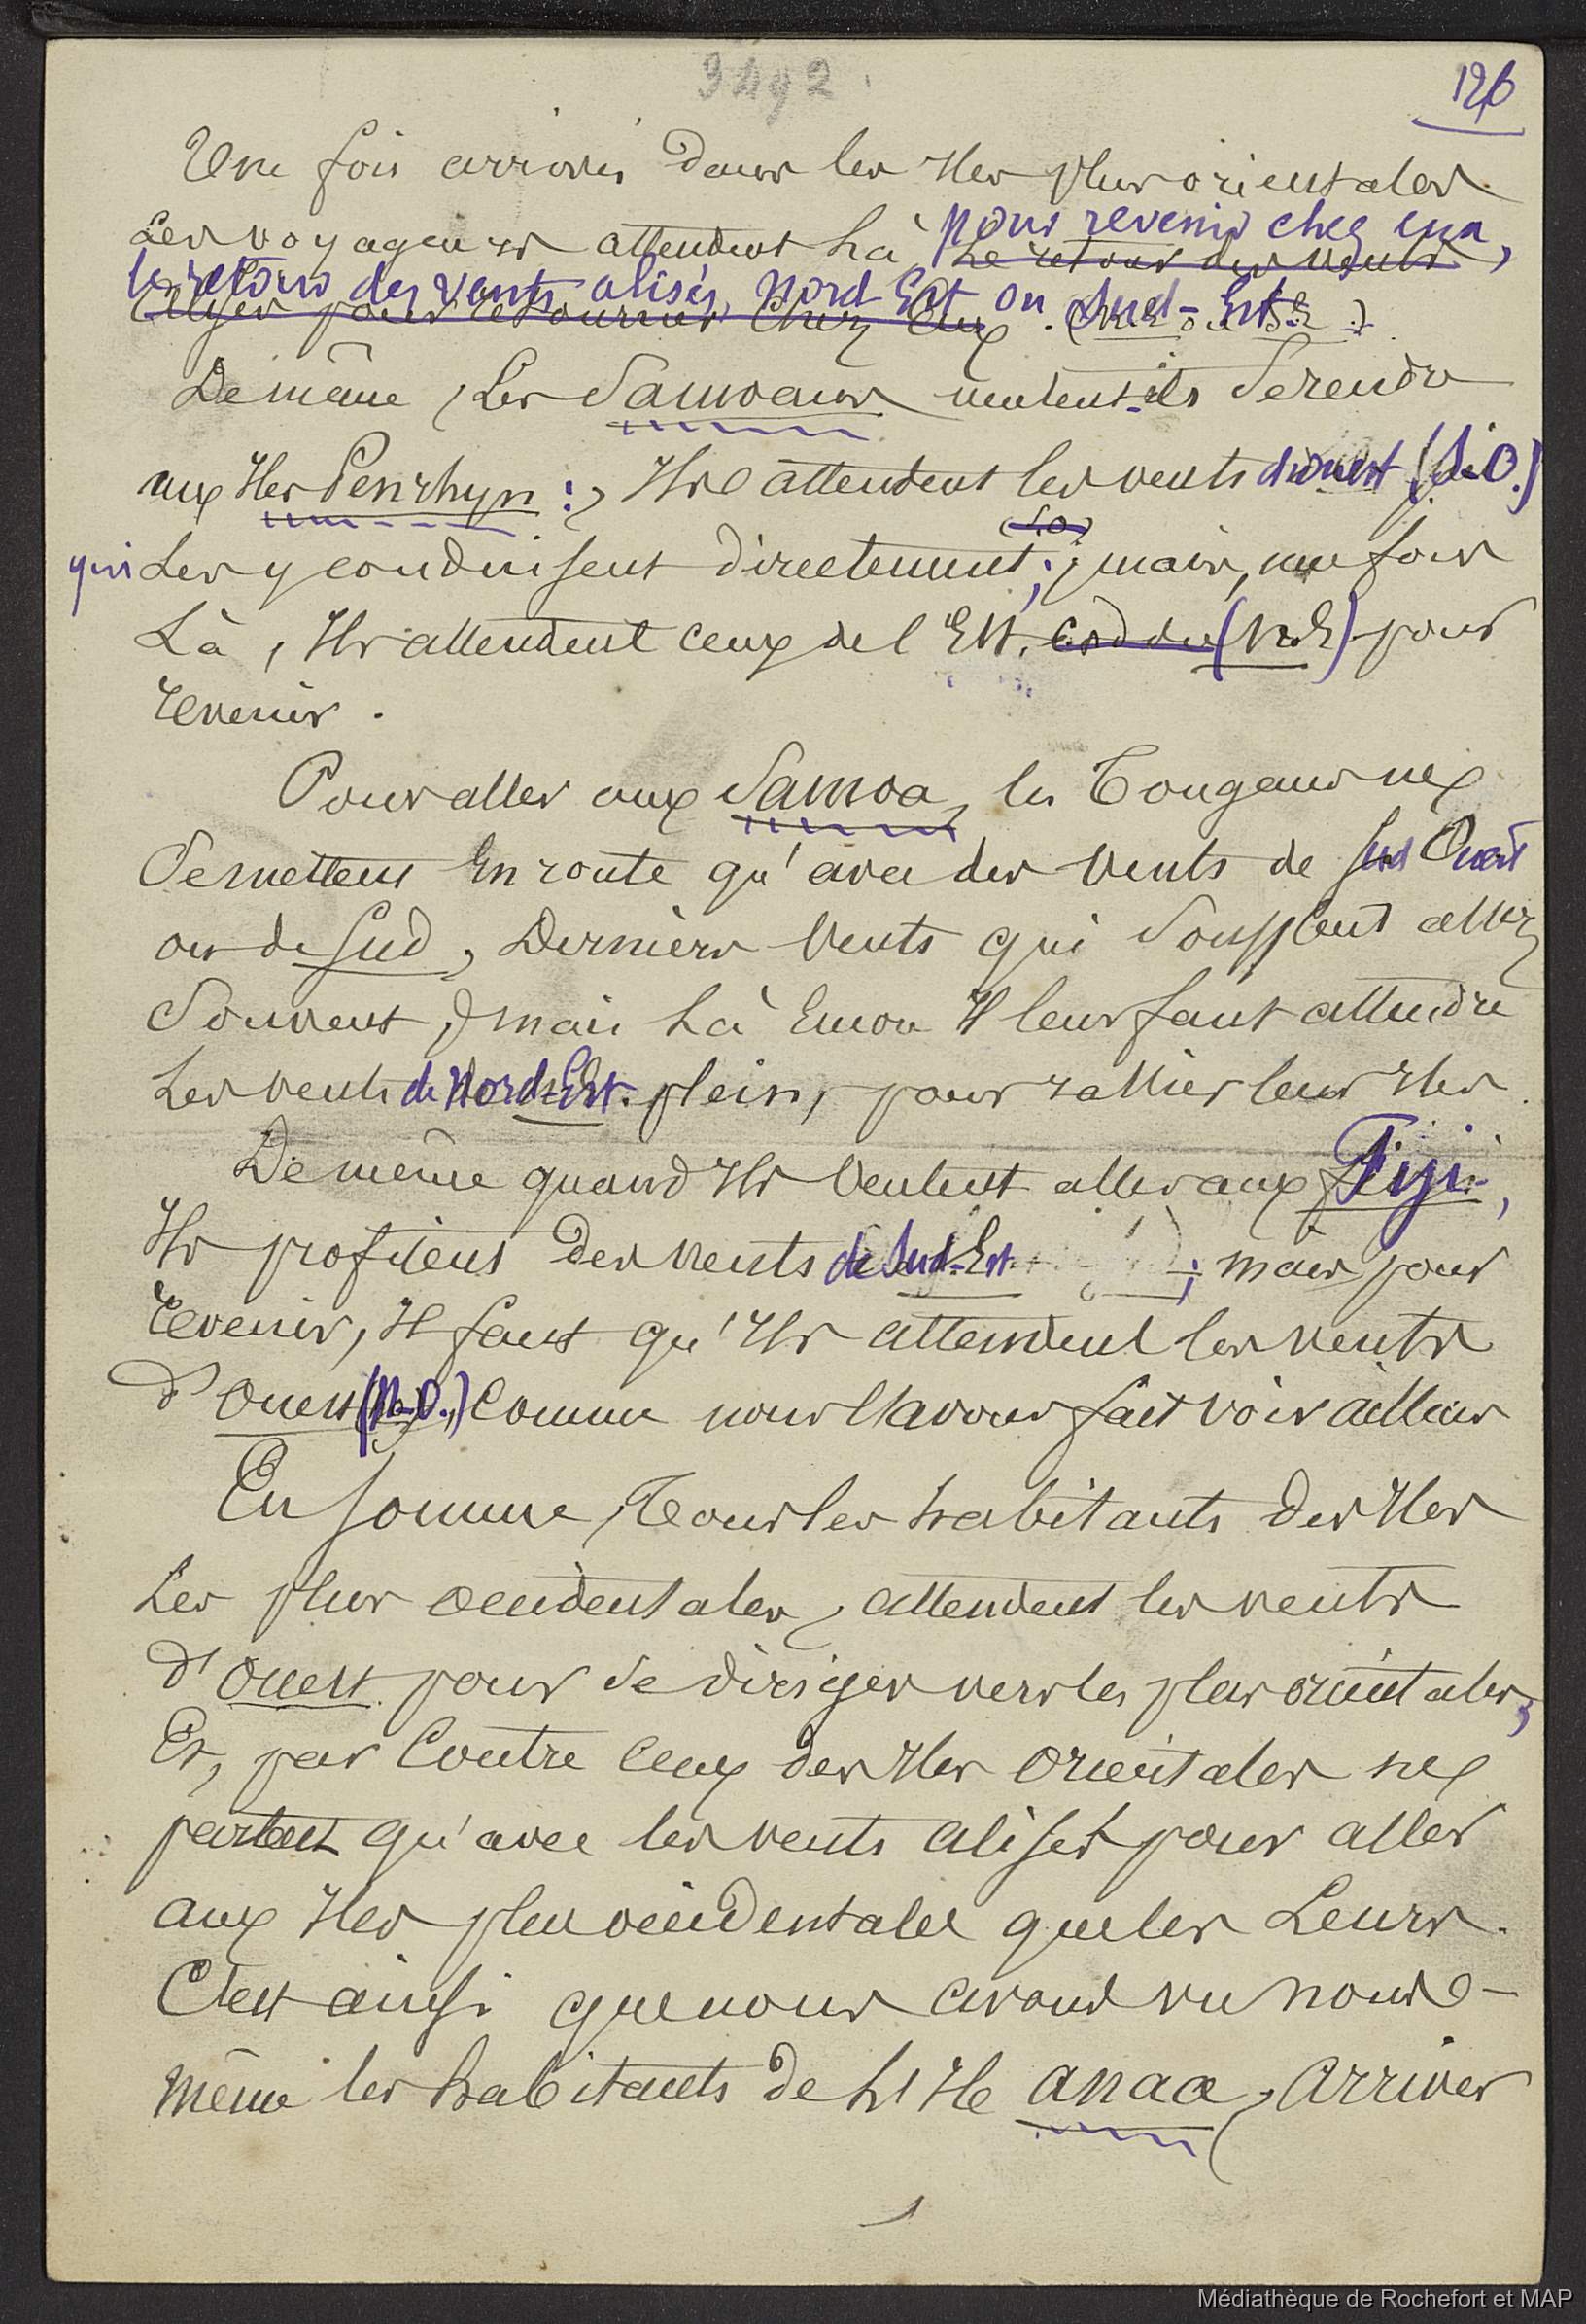 3492
126
Une fois arrivés dans les Iles plus orientales
Les voyageurs attendent là pour revenir chez eux,
Le retour des vents
le retour des vents alisés, Nord Est ou Sud-Est.
Alisés pour retourner chez eux.
De même, Les Samoans veulent-ils Se rendre
aux Iles Penrhyn : Ils attendent les vents d'ouest (S.O.)
(S.O)
qui Les y conduisent directement ; mais, une fois
Là, Ils attendent ceux de l'Est, (N.E) pour
revenir.
Pour aller aux Samoa, les Tongans ne
Se mettent En route qu'avec des vents de Sud Ouest
ou de Sud, Derniers vents qui Soufflent assez
Souvent, mais Là Encore Il leur faut attendre
Les vents de Nord-Est plein, pour rallier leurs Iles.
De même quand Ils veulent aller aux Fiji,
Ils profitent des vents de Sud-Est ; mais pour
revenir, Il faut qu'Ils attendent les vents
d'Ouest (N-O.) Comme nous l'avons fait voir ailleurs
En Somme, Tous les habitants des Iles
Les plus occidentales, attendent les vents
d'Ouest pour se diriger vers les plus orientales,
Et, par Contre Ceux des Iles Orientales ne
partent qu'avec les vents alisés pour aller
aux Iles plus occidentales que les Leurs.
C'est ainsi que nous avons vu nous-
même les habitants de L'Ile Anaa, Arriver
Médiathèque de Rochefort et MAP